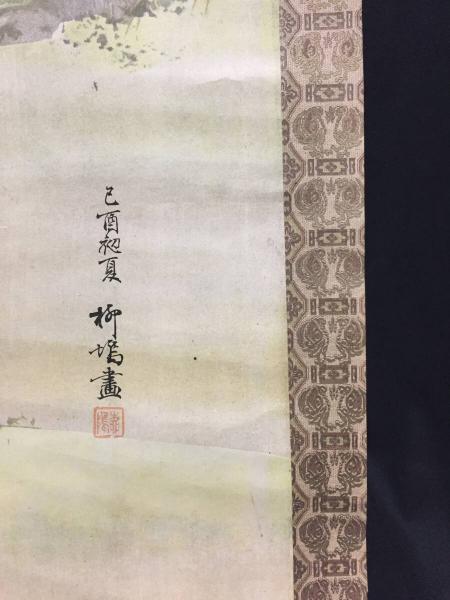 己酉初夏 柳塢畫